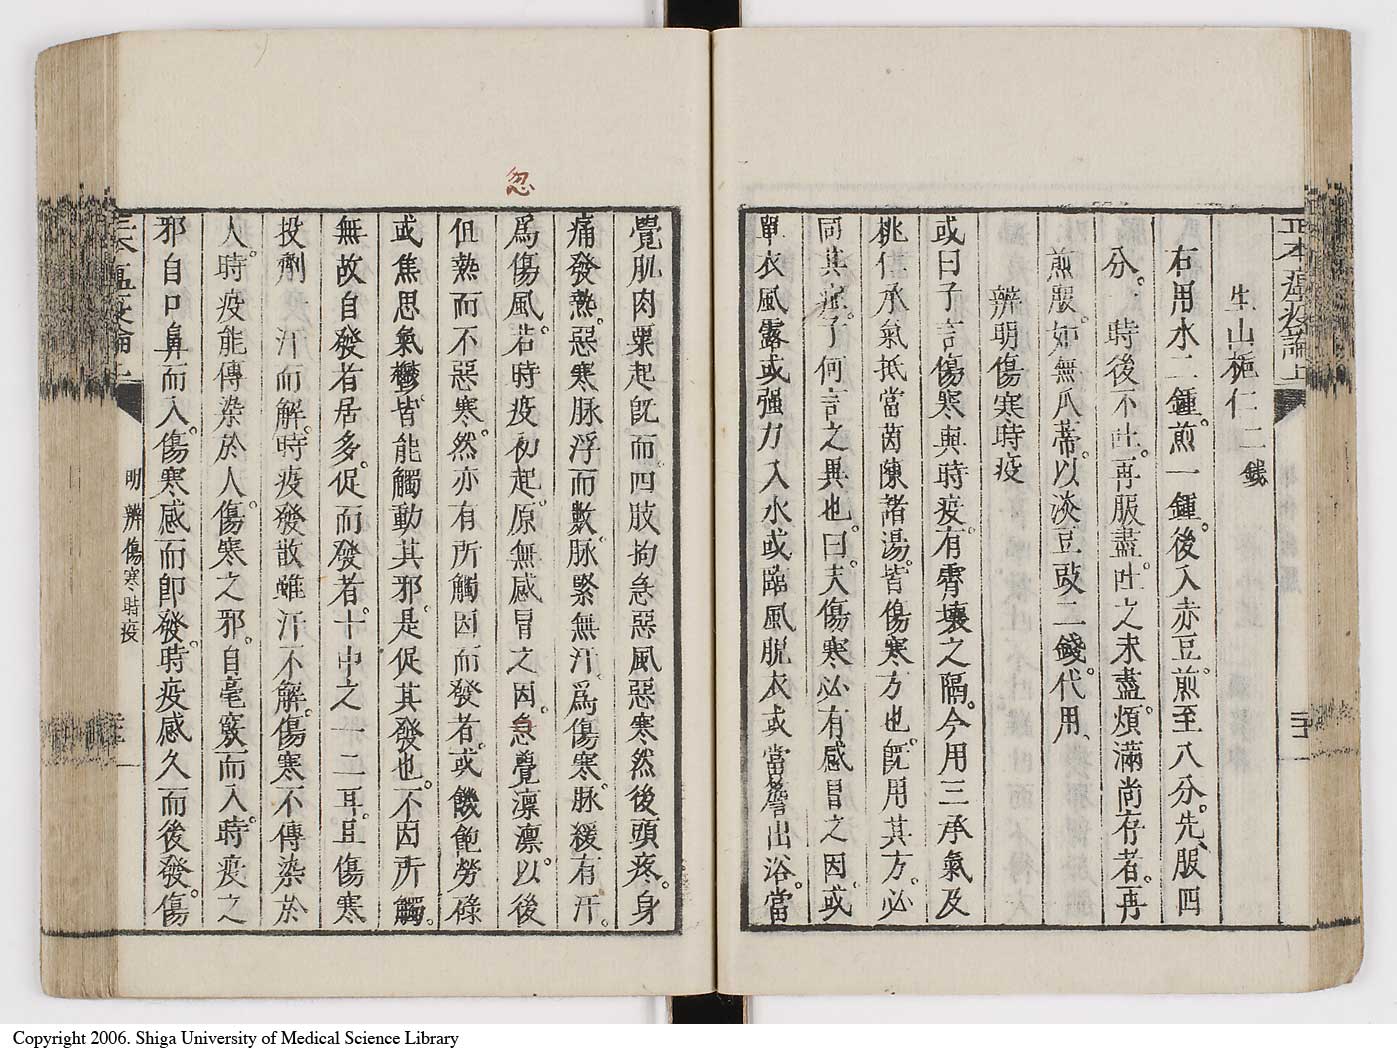 生山梔仁二錢
右用水二鍾。煎一鍾。後入赤豆。煎至八分。先服四
分。一時後不吐。再服盡。吐之未盡。煩滿尚存者。再
煎服。如無瓜蒂。以淡豆豉二錢。代用、
辨明傷寒時疫
或曰子言傷寒與時疫。有霄壤之隔。今用三承氣及
桃仁承氣抵當茵陳諸湯。皆傷寒方也。既用其方。必
同其症。子何言之異也。曰。夫傷寒必有感冒之因。或
單衣風露或强力入水或臨風脫衣或當簷出浴。當
覺肌肉粟起既而四肢拘急惡風惡寒然後頭疼。身
痛發熱。惡寒脉浮而數。脉緊無汗。爲傷寒。脉緩有汗。
爲傷風。若時疫初起。原無感冒之因。急覺凛凛。以後
但熱而不惡寒。然亦有所觸因而發者。或饑飽勞碌
或焦思氣鬱皆能觸動其邪。是促其發也。不因所觸。
無故自發者居多。促而發者。十中之一二耳。且傷寒
投劑一汗而解。時疫發散雖汗不解。傷寒不傳染於
人。時疫能傳染於人。傷寒之邪。自毫竅而入。時疫之
邪自口鼻而入。傷寒感而即發。時疫感久而後發。傷
忽
正本瘟疫論上
明辨傷寒時疫
Copyright 2006. Shiga University of Medical Science Library